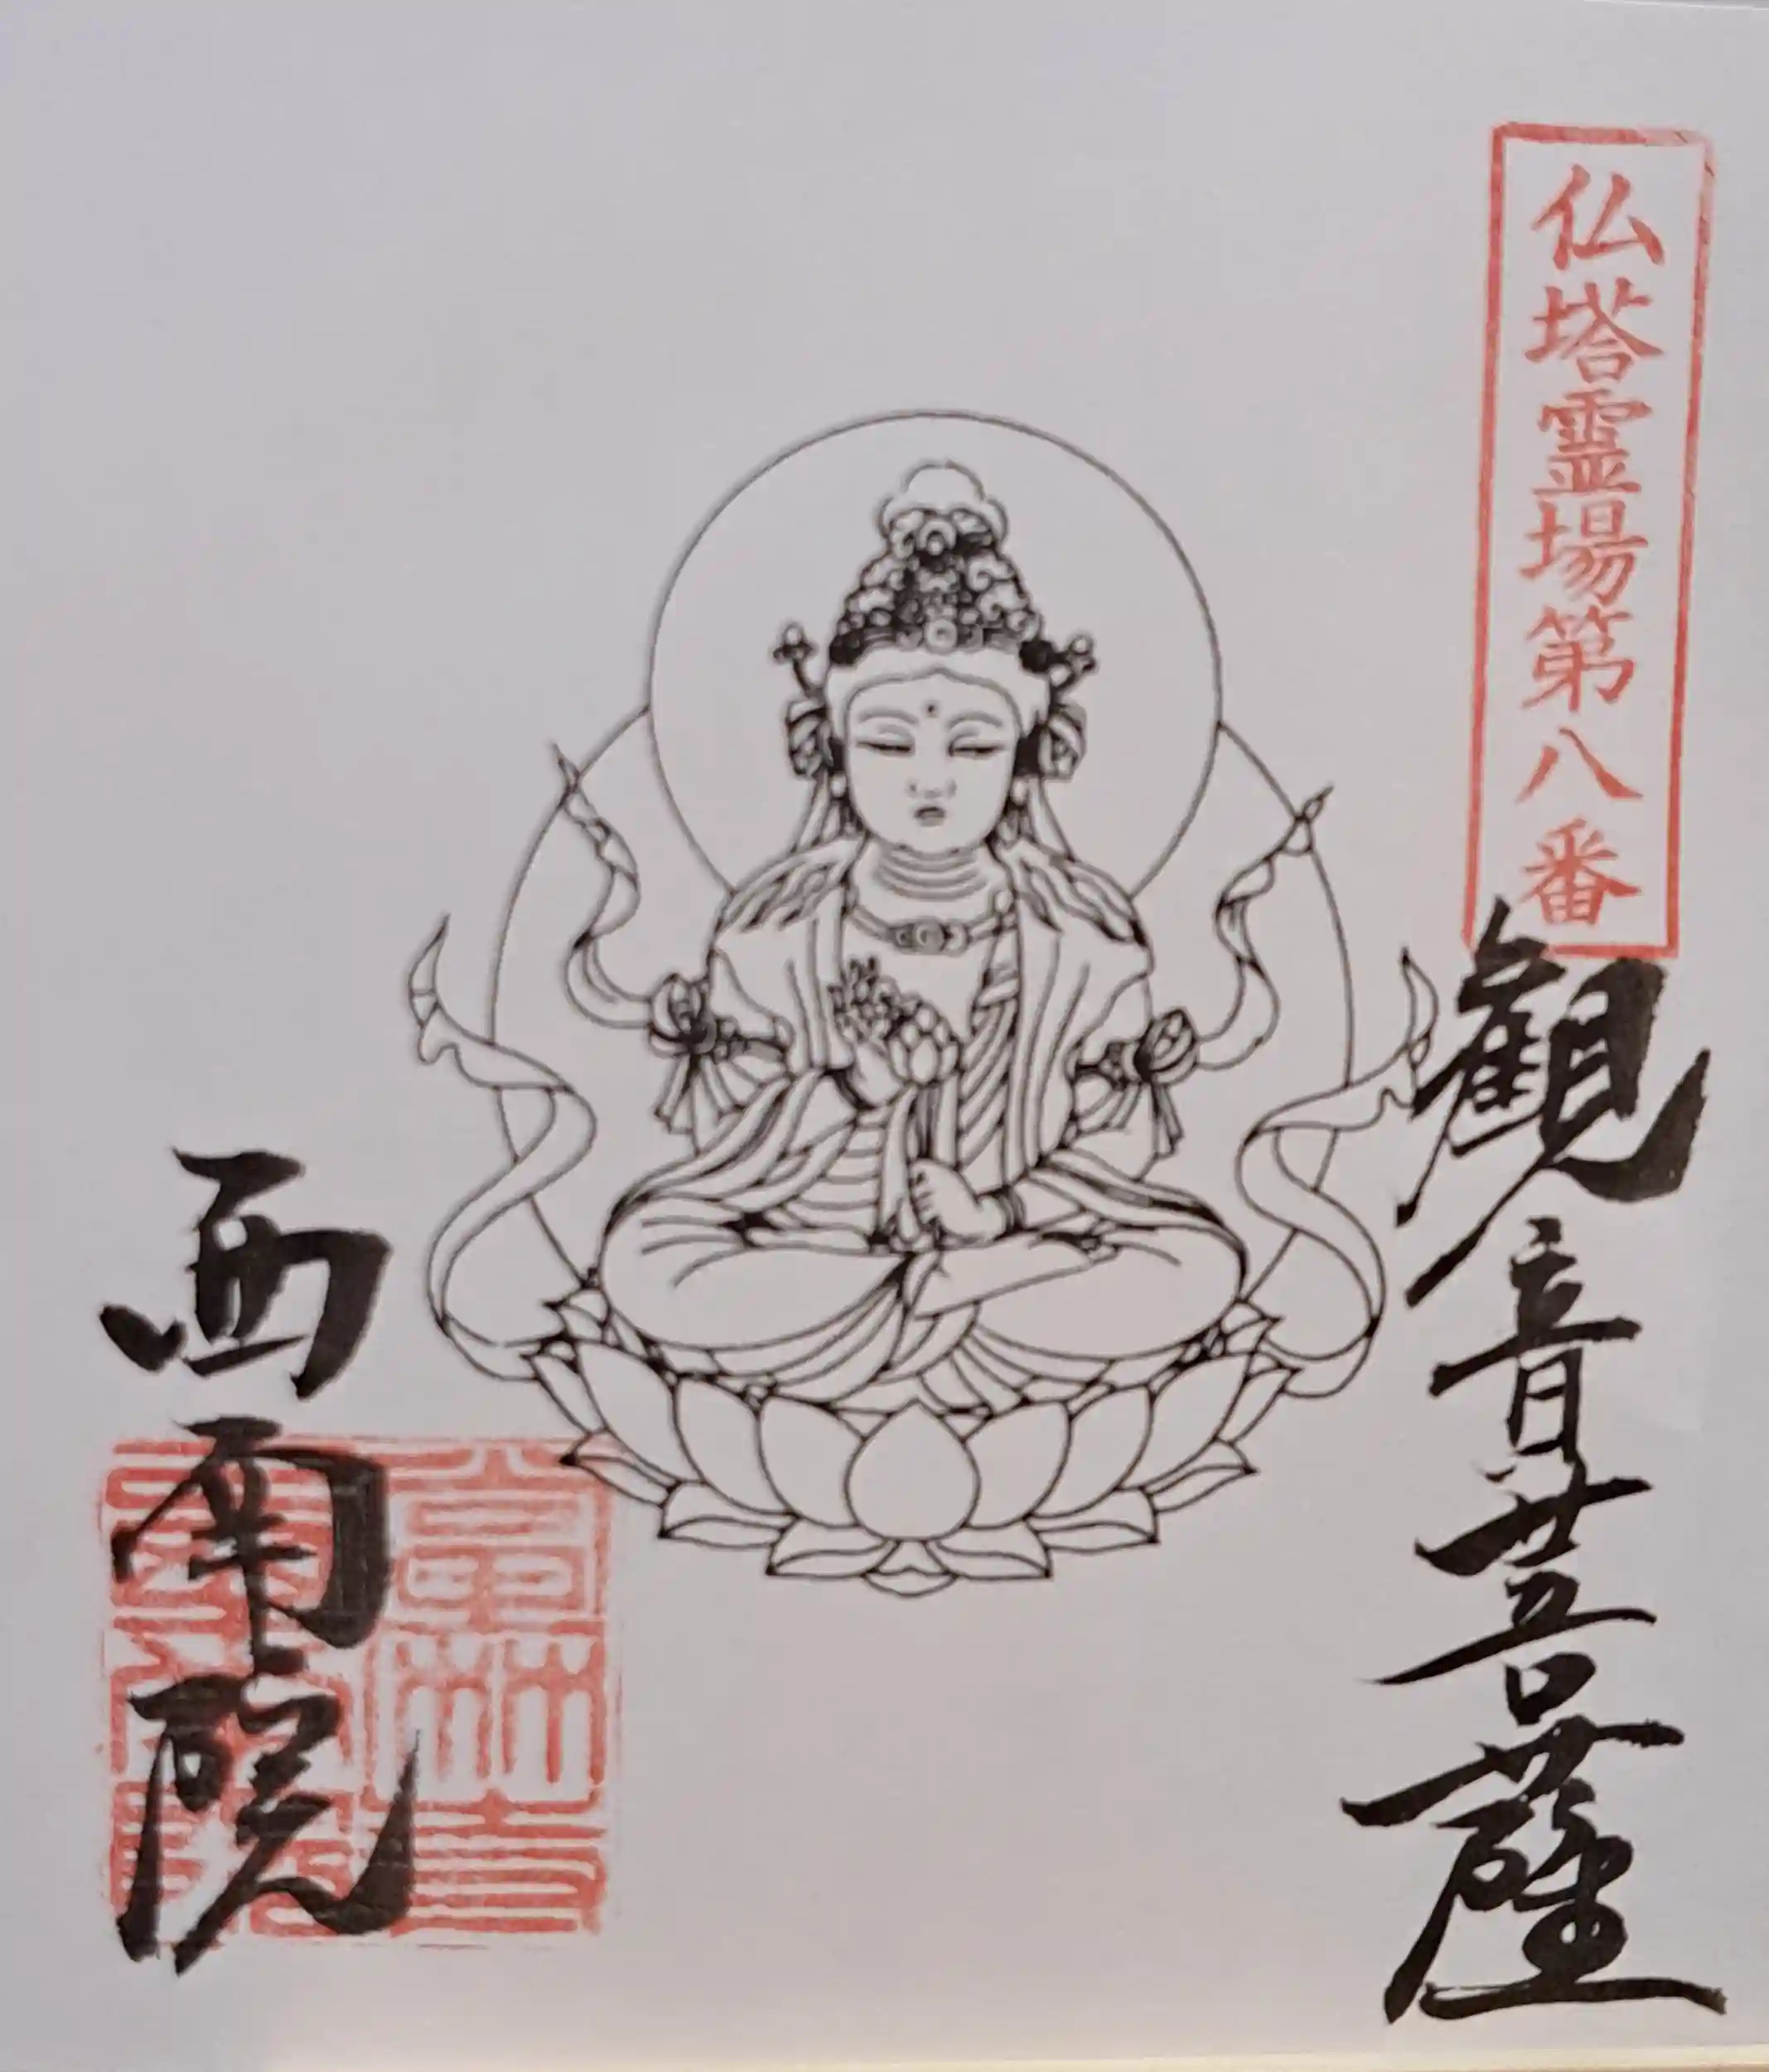 仏塔霊場第八番
観音菩薩
西南院